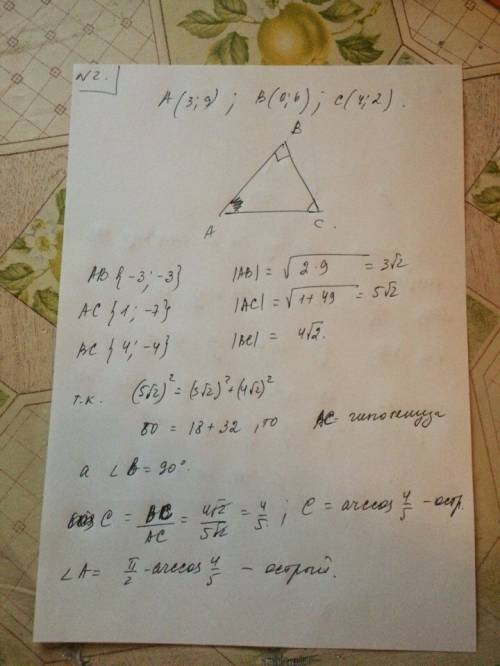 N2.
A(3;9) ; B(0;6) ; C(4;2).
B
A
C.
AB{-3;-3} |AB| = √2·9 = 3√2
AC{1;-7} |AC| = √1+49 = 5√2
BC{4;-4} |BC| = 4√2.
т.к. (5√2)² = (3√2)² + (4√2)²
50 = 18 + 32, то AC гипотенуза
а ∠B = 90°.
cos C = BC/AC = 4√2/5√2 = 4/5 ; C = arccos 4/5 - остр.
∠A = π/2 - arccos 4/5 - острый.